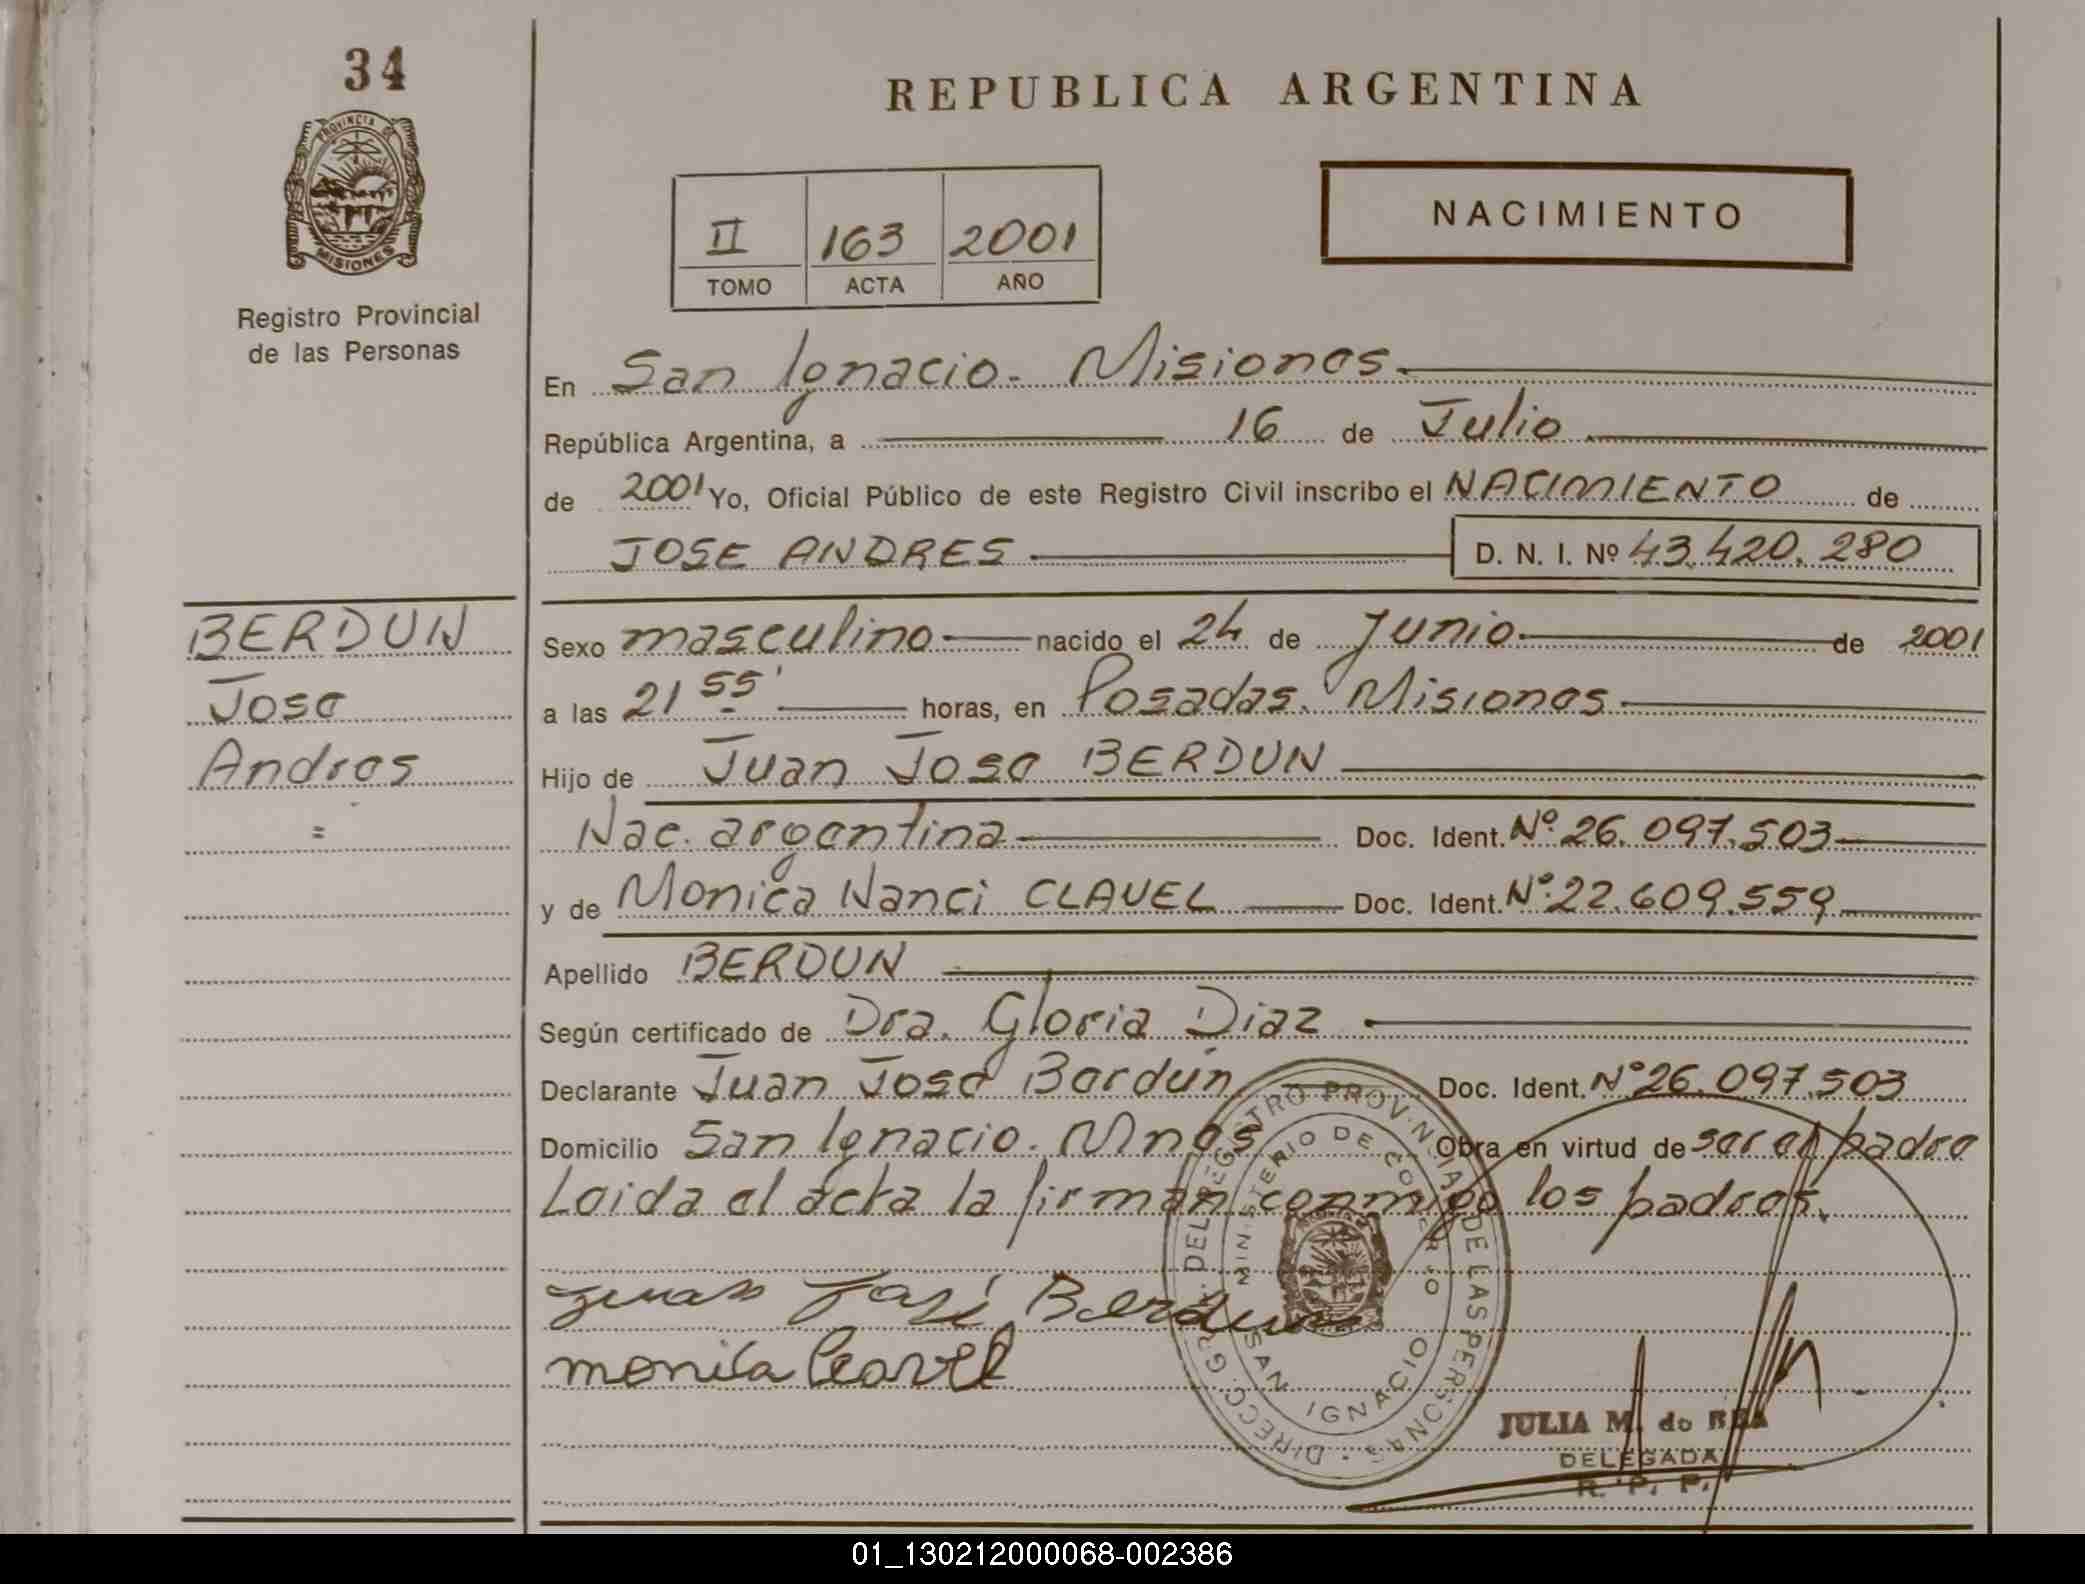 34
PROVINCIA DE
MISIONES
Registro Provincial
de las Personas
REPUBLICA ARGENTINA
II 163 2001
TOMO ACTA AÑO
NACIMIENTO
En San Ignacio. Misiones.
República Argentina, a 16 de Julio
de 2001 Yo, Oficial Público de este Registro Civil inscribo el NACIMIENTO de
JOSE ANDRES D. N. I. Nº 43.420.280
BERDUN
Jose
Andres
=
Sexo masculino nacido el 24 de Junio de 2001
a las 21 55' horas, en Posadas. Misiones
Hijo de Juan Jose BERDUN
Nac. argentina Doc. Ident. Nº. 26.097.503
y de Monica Nanci CLAVEL Doc. Ident. Nº. 22.609.559
Apellido BERDUN
Según certificado de Dra. Gloria Diaz
Declarante Juan Jose Berdún Doc. Ident. Nº 26.097.503
Domicilio San Ignacio. Mnes Obra en virtud de ser el padre
Leida el acta la firman conmigo los padres.
Juan José Berdun
monica Clavel
DIRECC. GRAL. DEL REGISTRO PROVINCIAL DE LAS PERSONAS
MINISTERIO DE GOBIERNO
SAN IGNACIO
JULIA M. de REA
DELEGADA
R. P. P.
01_130212000068-002386